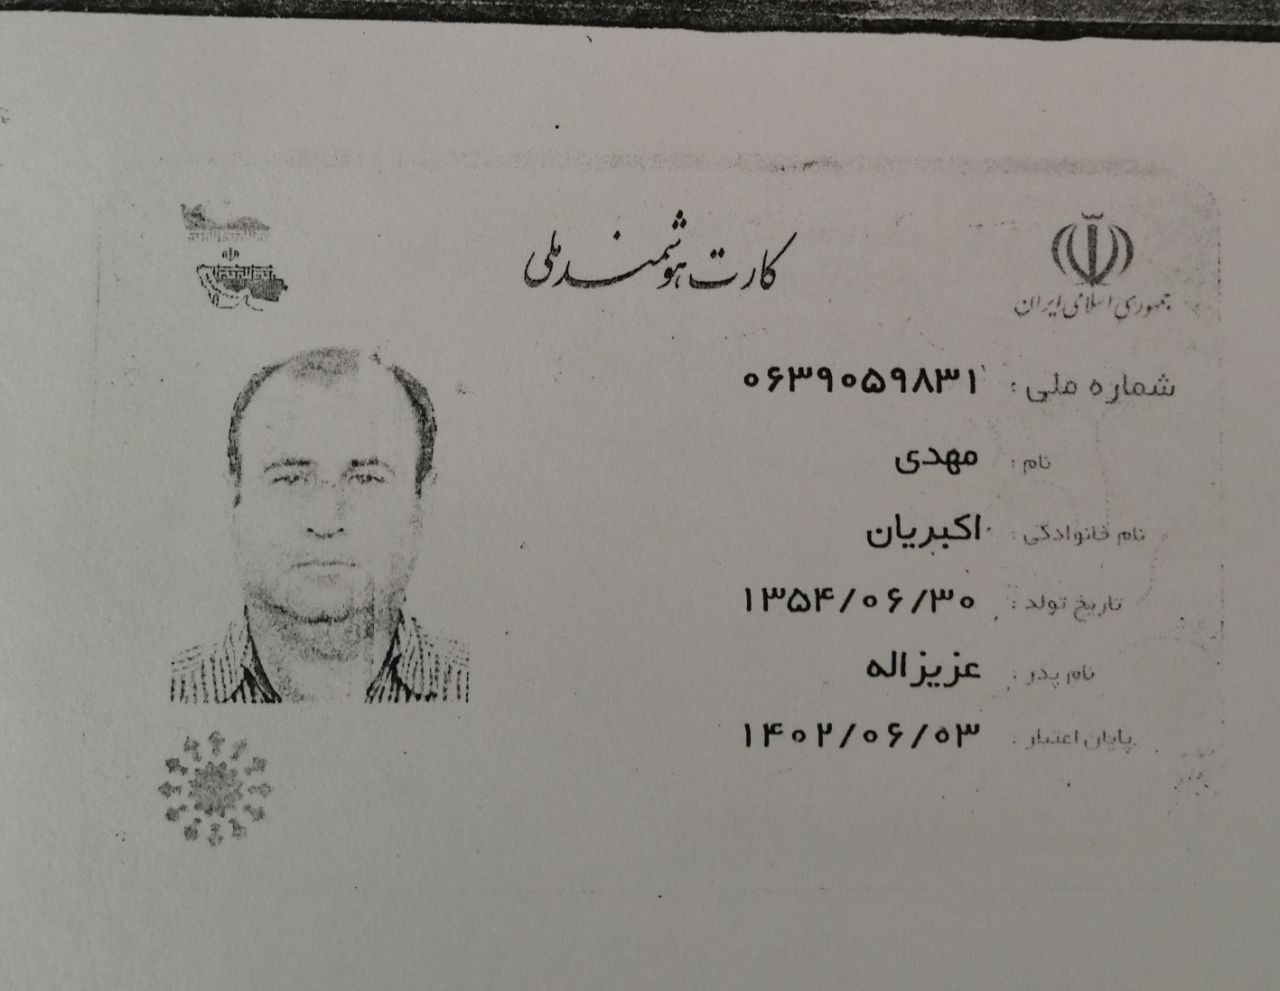 جمهوری اسلامی ایران
کارت هوشمند ملی
شماره ملی: ۰۶۳۹۰۵۹۸۳۱
نام: مهدی
نام خانوادگی: اکبریان
تاریخ تولد: ۱۳۵۴/۰۶/۳۰
نام پدر: عزیزاله
پایان اعتبار: ۱۴۰۲/۰۶/۰۳